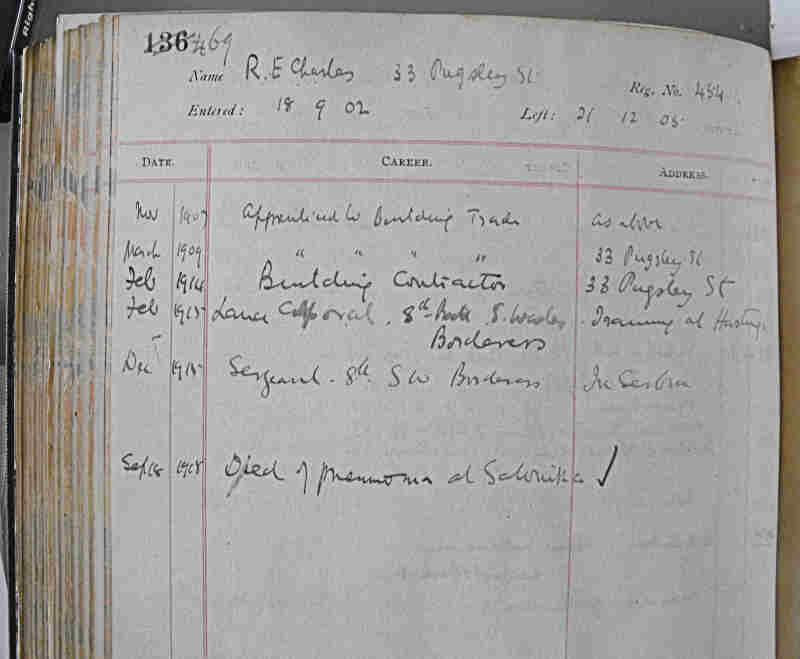 136 469
Name R. E Charles 33 Pugsley St Reg. No. 454
Entered: 18 9 02 Left: 21 12 05
DATE. CAREER. ADDRESS.
Nov 1907 Apprenticed to Building Trade as above
March 1909 " " " " 33 Pugsley St
Feb 1914 Building Contractor 33 Pugsley St
Feb 1915 Lance Corporal. 8th Batt S. Wales Training at Hastings
Borderers
Dec 1915 Sergeant. 8th S W Borderers In Serbia
Sep 18 1918 Died of pneumonia at Salonika